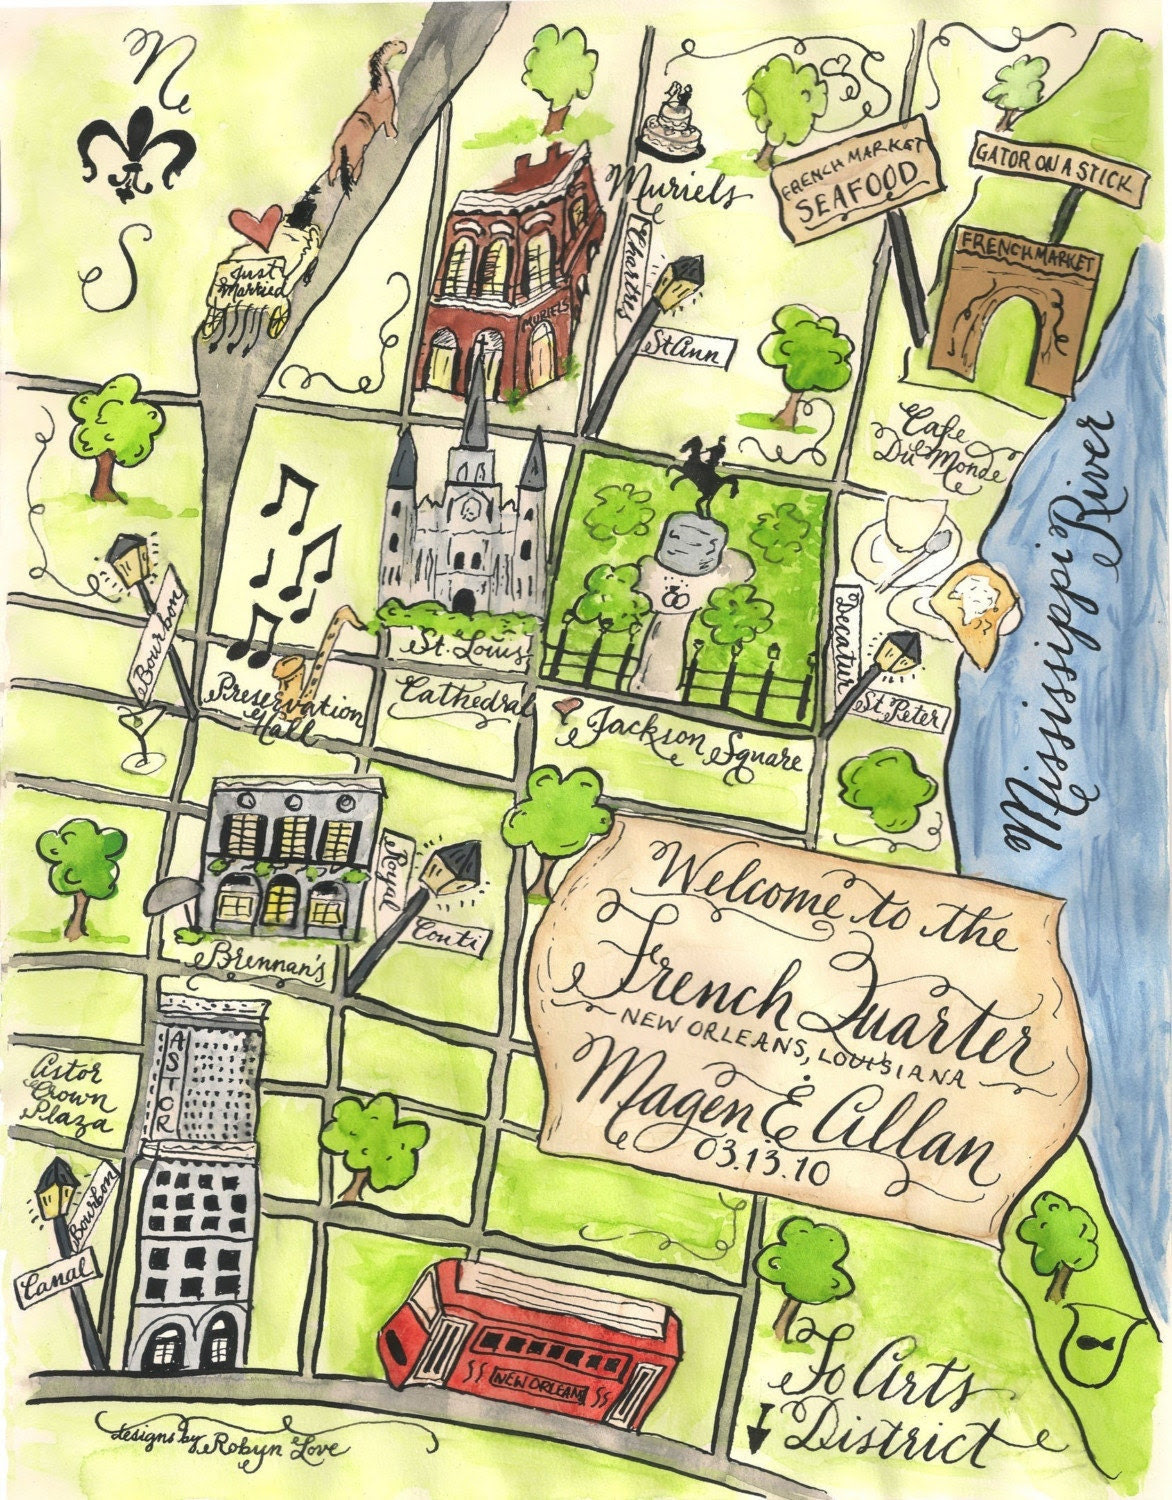 N
S
Just
Married
Muriels
MURIELS
Chartres
St Ann
FRENCH MARKET
SEAFOOD
GATOR ON A STICK
FRENCH MARKET
Cafe
Du Monde
Mississippi River
Bourbon
Preservation
Hall
St. Louis
Cathedral
Jackson Square
Decatur
St Peter
Brennan's
Royal
Conti
Welcome to the
French Quarter
NEW ORLEANS, LOUISIANA
Magen & Allan
03.13.10
ASTOR
Astor
Crown
Plaza
Bourbon
Canal
NEW ORLEANS
To Arts
District
designs by Robyn Love